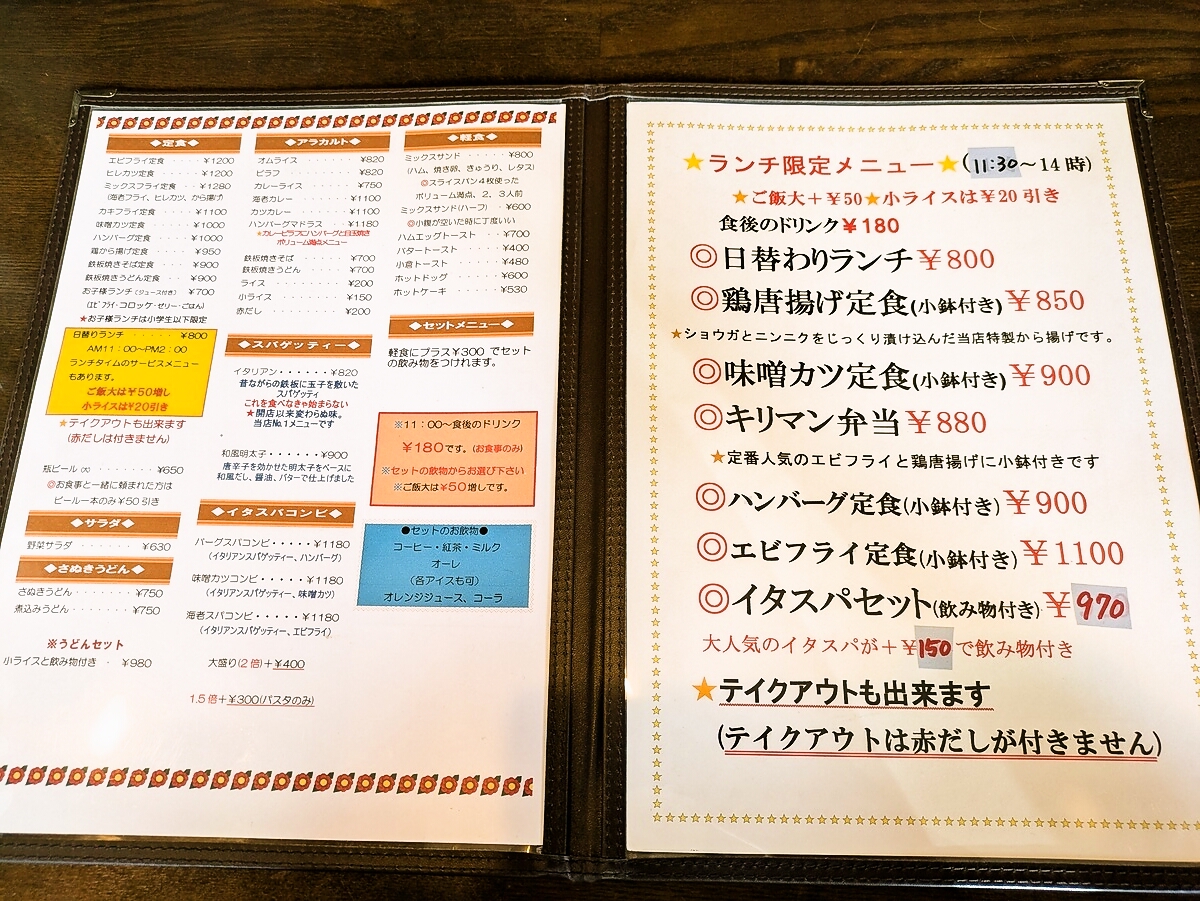 ◆定食◆
エビフライ定食 ・・ ¥1200
ヒレカツ定食 ・・・ ¥1200
ミックスフライ定食 ・・・ ¥1280
(海老フライ、ヒレカツ、から揚げ)
カキフライ定食 ・・・ ¥1100
味噌カツ定食 ・・・・ ¥1000
ハンバーグ定食 ・・・ ¥1000
鶏から揚げ定食 ・・・ ¥950
鉄板焼きそば定食 ・・・ ¥900
鉄板焼きうどん定食 ・・ ¥900
お子様ランチ(ジュース付き) ¥700
(エビフライ・コロッケ・ゼリー・ごはん)
★お子様ランチは小学生以下限定
日替りランチ ・・・・・・ ¥800
AM11:00~PM2:00
ランチタイムのサービスメニュー
もあります。
ご飯大は¥50増し
小ライスは¥20引き
★テイクアウトも出来ます
(赤だしは付きません)
瓶ビール(大) ・・・・・・・ ¥650
◎お食事と一緒に頼まれた方は
ビール一本のみ¥50引き
◆サラダ◆
野菜サラダ ・・・・・・ ¥630
◆さぬきうどん◆
さぬきうどん・・・・・・ ¥750
煮込みうどん・・・・・・ ¥750
※うどんセット
小ライスと飲み物付き ・ ¥980
◆アラカルト◆
オムライス ・・・・・・ ¥820
ピラフ ・・・・・・・ ¥820
カレーライス ・・・・・ ¥750
海老カレー ・・・・・ ¥1100
カツカレー ・・・・・ ¥1100
ハンバーグマドラス ・・・ ¥1180
★カレーピラフにハンバーグと目玉焼き
ボリューム満点メニュー
鉄板焼きそば ・・・・・ ¥700
鉄板焼きうどん ・・・・ ¥700
ライス ・・・・・・・ ¥200
小ライス ・・・・・・ ¥150
赤だし ・・・・・・・ ¥200
◆スパゲッティー◆
イタリアン・・・・・・¥820
昔ながらの鉄板に玉子を敷いた
スパゲッティ
これを食べなきゃ始まらない
★開店以来変わらぬ味。
当店No.1メニューです
和風明太子・・・・・・¥900
唐辛子を効かせた明太子をベースに
和風だし、醤油、バターで仕上げました
◆イタスパコンビ◆
バーグスパコンビ・・・・・¥1180
(イタリアンスパゲッティー、ハンバーグ)
味噌カツコンビ・・・・・¥1180
(イタリアンスパゲッティー、味噌カツ)
海老スパコンビ・・・・・¥1180
(イタリアンスパゲッティー、エビフライ)
大盛り(2倍)+¥400
1.5倍+¥300(パスタのみ)
◆軽食◆
ミックスサンド ・・・・・ ¥800
(ハム、焼き卵、きゅうり、レタス)
◎スライスパン4枚使った
ボリューム満点、2、3人前
ミックスサンド(ハーフ) ・ ¥600
◎小腹が空いた時に丁度いい
ハムエッグトースト ・・・ ¥700
バタートースト ・・・・・ ¥400
小倉トースト ・・・・・・ ¥480
ホットドッグ ・・・・・・ ¥600
ホットケーキ ・・・・・・ ¥530
◆セットメニュー◆
軽食にプラス¥300でセット
の飲み物をつけれます。
※11:00~食後のドリンク
¥180です。(お食事のみ)
※セットの飲物からお選び下さい
※ご飯大は¥50増しです。
●セットのお飲物●
コーヒー・紅茶・ミルク
オーレ
(各アイスも可)
オレンジジュース、コーラ
★ランチ限定メニュー★(11:30~14時)
★ご飯大+¥50★小ライスは¥20引き
食後のドリンク¥180
◎日替わりランチ¥800
◎鶏唐揚げ定食(小鉢付き)¥850
★ショウガとニンニクをじっくり漬け込んだ当店特製から揚げです。
◎味噌カツ定食(小鉢付き)¥900
◎キリマン弁当¥880
★定番人気のエビフライと鶏唐揚げに小鉢付きです
◎ハンバーグ定食(小鉢付き)¥900
◎エビフライ定食(小鉢付き)¥1100
◎イタスパセット(飲み物付き)¥970
大人気のイタスパが+¥150で飲み物付き
★テイクアウトも出来ます
(テイクアウトは赤だしが付きません)